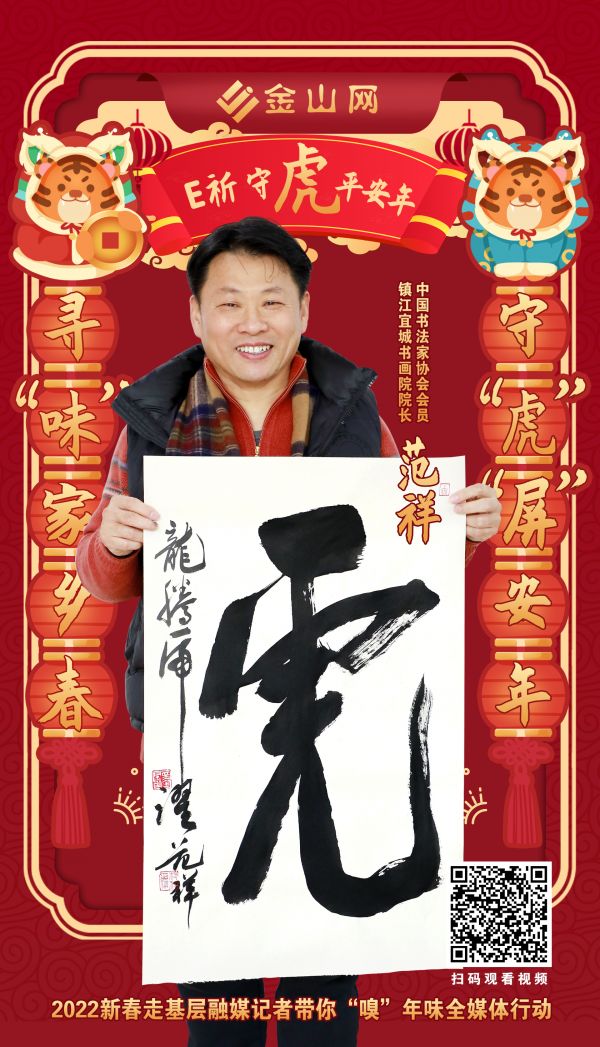 金山网
E祈守虎平安年
中国书法家协会会员
镇江宜城书画院院长
范祥
寻“味”家乡春
守“虎”“屏”安年
虎
龍騰虎躍
范祥
扫码观看视频
2022新春走基层融媒记者带你“嗅”年味全媒体行动